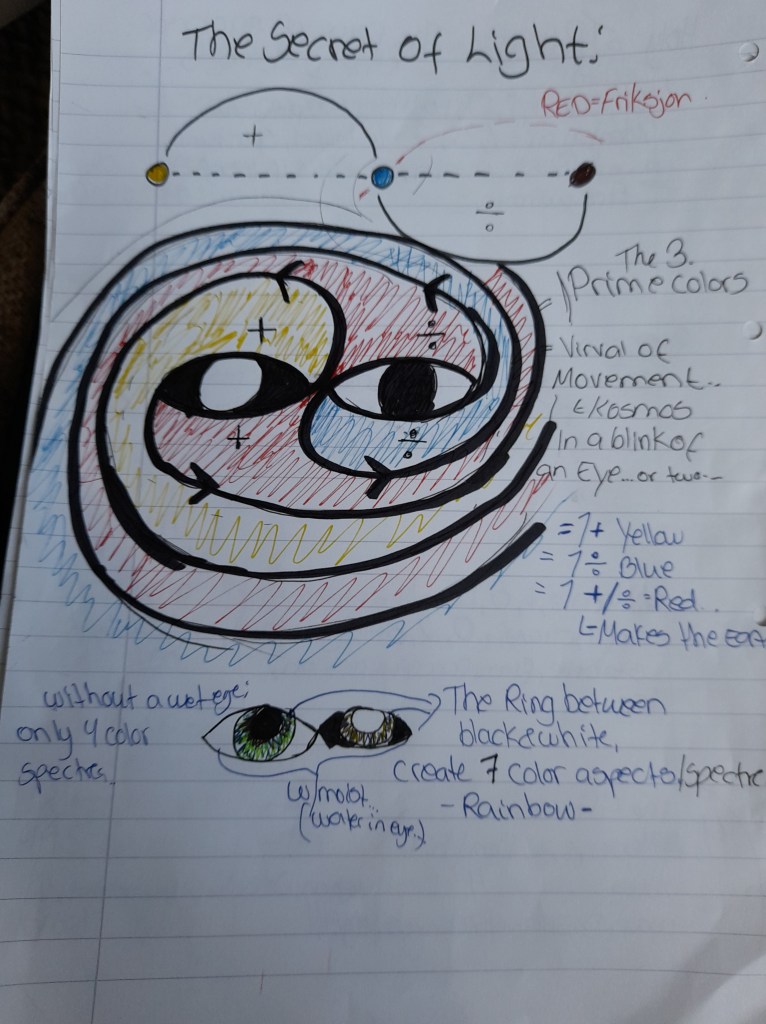 The Secret of Light:
RED=Friksjon.
+
÷
The 3.
Prime colors
= Virval of
Movement..
& Kosmos
In a blink of
an Eye...or two--
+
÷
+
÷
= 1+ Yellow
= 1÷ Blue
= 1 +/÷=Red..
Makes the
without a wet eye;
only 4 color
spectres.
The Ring between
black&white,
Create 7 color aspects/spectre
-Rainbow-
w/moist...
(water in eye.)